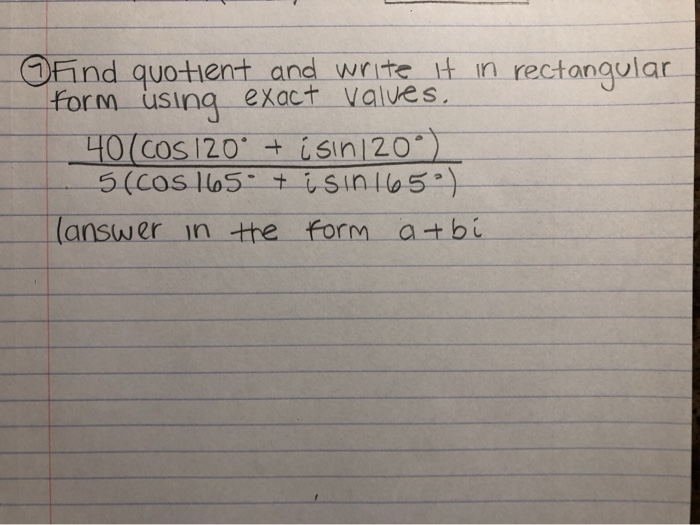 ⑦ Find quotient and write it in rectangular
form using exact values.
40(cos120° + isin120°)
5(cos165° + isin165°)
(answer in the form a+bi